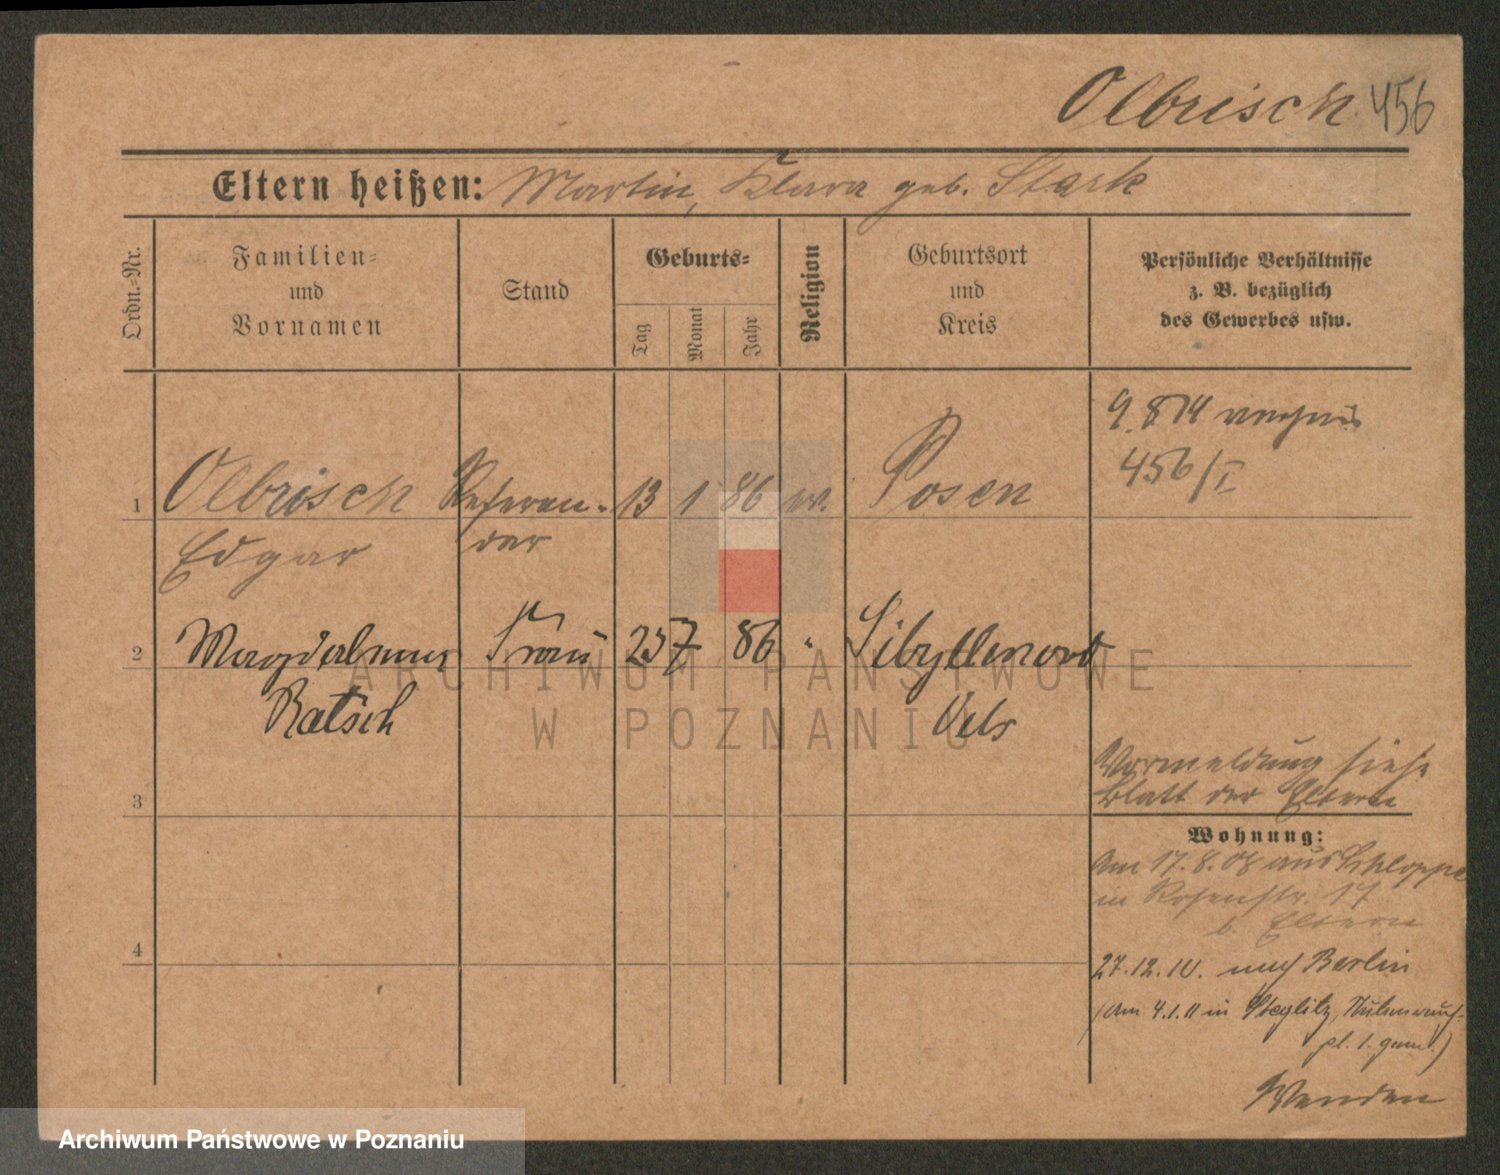 Olbrisch 456
Eltern heißen: Martin, Klara geb. Stark
Ordn.=Nr.
Familien=
und
Vornamen
Stand
Geburts=
Tag
Monat
Jahr
Religion
Geburtsort
und
Kreis
Persönliche Verhältnisse
z. B. bezüglich
des Gewerbes usw.
9. 8 14
456/I
1 Olbrisch Referen- 13 1 86 ev. Posen
Edgar dar
2 Magdalena Frau 7 86 " Sibyllenort
Ratsch Oels
3
Vormeldung siehe
Blatt der Eltern
Wohnung:
Am 17.8.08 aus Schloppe
in Rosenstr. 17
b. Eltern
4
27.12.10. nach Berlin
(Am 4.1.11 in Steglitz,
pl. 1. gem.)
Wenden
ARCHIWUM PAŃSTWOWE
W POZNANIU
Archiwum Państwowe w Poznaniu